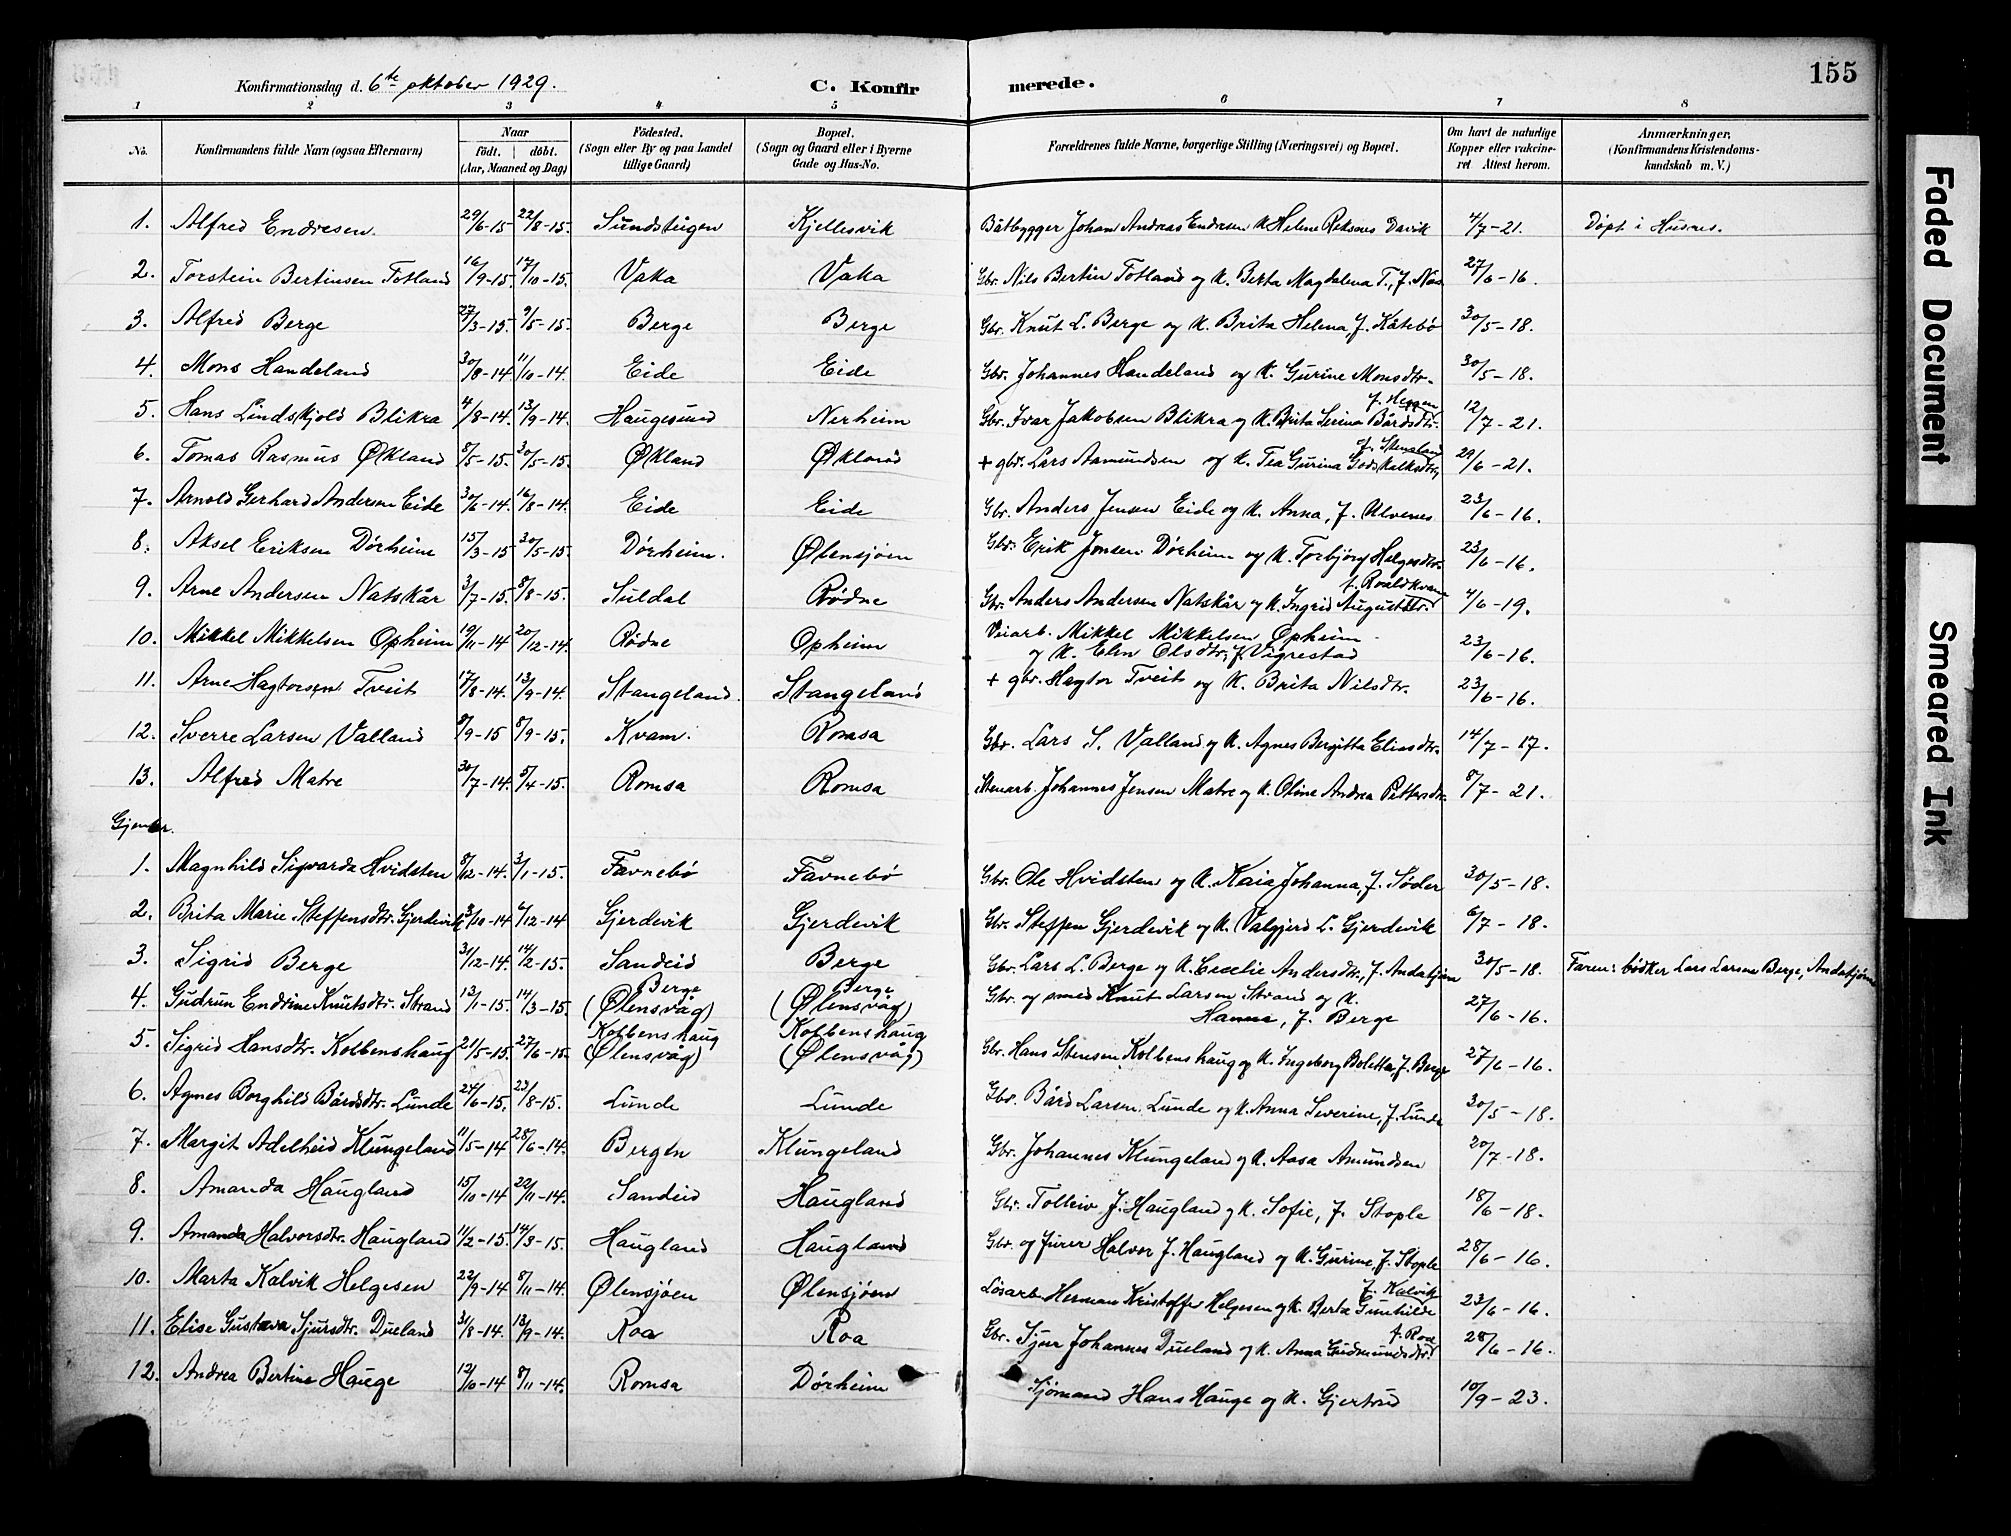 155
Konfirmationsdag d. 6te oktober 1929.
C. Konfirmerede.
1 2 3 4 5 6 7 8
No. Konfirmandens fulde Navn (ogsaa Efternavn) Naar født. døbt. (Aar, Maaned og Dag) Fødested. (Sogn eller By og paa Landet tillige Gaard) Bopæl. (Sogn og Gaard eller i Byerne Gade og Hus-No. Forældrenes fulde Navne, borgerlige Stilling (Næringsvei) og Bopæl. Om havt de naturlige Kopper eller vakcineret Attest herom. Anmærkninger, (Konfirmandens Kristendomskundskab m. V.)
1. Alfred Endresen 29/6-15 22/8-15. Sundstugen Kjellesvik Båtbygger Johan Andreas Endresen K Helene Davik 4/7-21. Døpt i Husnes.
2. Torstein Bertinsen Totland 16/9-15. 17/10-15. Vaka Vaka Gbr. Nils Bertin Totland og K. Berta Magdalena T., f. Næs 27/6-16.
3. Alfred Berge 27/3-15. 9/5-15. Berge Berge Gbr. Knut L. Berge og K. Brita Helena, f. Katebø 30/5-18.
4. Mons Handeland 30/8-14 11/10-14. Eide Eide Gbr. Johannes Handeland og K. Gurine Monsdtr. 30/5-18.
5. Hans Lindskjold Blikra 4/8-14. 13/9-14. Haugesund Nerheim Gbr. Ivar Jakobsen Blikra og K. Brita Serina Bårdsdtr. f. Heggen 12/7-21.
6. Tomas Rasmus Økland 8/5-15. 30/5-15. Økland Økland + gbr. Lars Aamundsen og K. Tea Gurina Godskalksdtr, f. Stensland 29/6-21.
7. Arnold Gerhard Andersen Eide 30/6-14 16/8-14. Eide Eide Gbr. Anders Jensen Eide og K. Anna, f. Alvenes 23/6-16.
8. Aksel Eriksen Dørheim 15/3-15 30/5-15. Dørheim. Ølensjøen Gbr. Erik Jonsen Dørheim og K. Torbjørg Helgesdtr. 23/6-16.
9. Arne Andersen Natskår 3/7-15. 8/8-15. Suldal Rødne Gbr. Anders Andersen Natskår og K. Ingrid Augustdtr. f. Roaldkvam 4/6-19.
10. Mikkel Mikkelsen Opheim 19/11-14 20/12-14. Rødne Opheim Veiarb. Mikkel Mikkelsen Opheim og K. Elen Olsdtr, f. Vigrestad 23/6-16.
11. Arne Hagtorsen Tveit 17/8-14. 13/9-14. Stangeland. Stangeland + gbr. Hagtor Tveit og K. Brita Nilsdtr. 23/6-16.
12. Sverre Larsen Valland 8/9-15 8/9-15. Kvam. Romsa Gbr. Lars S. Valland og K. Agnes Bergitta Eliasdtr. 14/7-17.
13. Alfred Matre 30/7-14. 5/4-15. Romsa Romsa Stenarb. Johannes Jensen Matre og K. Oline Andrea Pettersdtr. 8/7-21.
Gjenter.
1. Magnhild Sigvarda Hvidsten 8/12-14. 3/1-15. Favnebø Favnebø Gbr. Ole Hvidsten og K. Kaia Johanna, f. Søder 30/5-18.
2. Brita Marie Steffensdtr. Gjerdevik 3/10-14 6/12-14 Gjerdevik Gjerdevik Gbr. Steffen Gjerdevik og K. Valgjerd L. Gjerdevik 6/7-18.
3. Sigrid Berge 31/12-14. 14/2-15. Sandeid Berge Gbr. Lars L. Berge og K. Cecelie Andersdtr., f. Andalsjøen 30/5-18. Faren: bødker Lars Larsen Berge, Andasjøen
4. Gudrun Endrine Knutsdtr. Strand 13/1-15. 14/3-15. Berge (Ølensvåg) Berge (Ølensvåg) Gbr. og smed Knut Larsen Strand og K. Hanna, f. Berge 27/6-16.
5. Sigrid Hansdtr. Kolbenshaug 21/5-15. 27/6-15. Kolbenshaug (Ølensvåg) Kolbenshaug (Ølensvåg) Gbr. Hans Stensen Kolbenshaug og K. Ingeborg Boletta, f. Berge 27/6-16.
6. Agnes Borghild Bårdsdtr. Lunde 24/6-15. 23/8-15. Lunde Lunde Gbr. Bård Larsen Lunde og K. Anna Severine, f. Lunde 30/5-18.
7. Margit Adelheid Klungeland 11/5-14 28/6-14. Bergen Klungeland Gbr. Johannes Klungeland og K. Aasa Amundsen 20/7-18.
8. Amanda Haugland 15/10-14 22/11-14. Sandeid Haugland Gbr. Tolleiv J. Haugland og K. Sofie, f. Stople 18/6-18.
9. Amanda Halvorsdtr. Haugland 11/2-15. 14/3-15. Haugland Haugland Gbr. og fører Halvor J. Haugland og K. Gurine, f. Stople 28/6-16.
10. Marta Kalvik Helgesen 22/9-14 8/11-14. Ølensjøen Ølensjøen Løsarb. Herman Kristoffer Helgesen og K. Berta Gunhilde f. Kalvik 23/6-16.
11. Elise Gustava Sjursdtr. Dueland 31/8-14. 13/9-14. Roa Roa Gbr. Sjur Johannes Dueland og K. Anna Gudmundsdtr. f. Roa 28/6-16.
12. Andrea Bertine Hauge 12/10-14 8/11-14. Romsa Dørheim Sjømand Hans Hauge og K. Gjertrud 10/9-23.
Faded Document
Smeared Ink